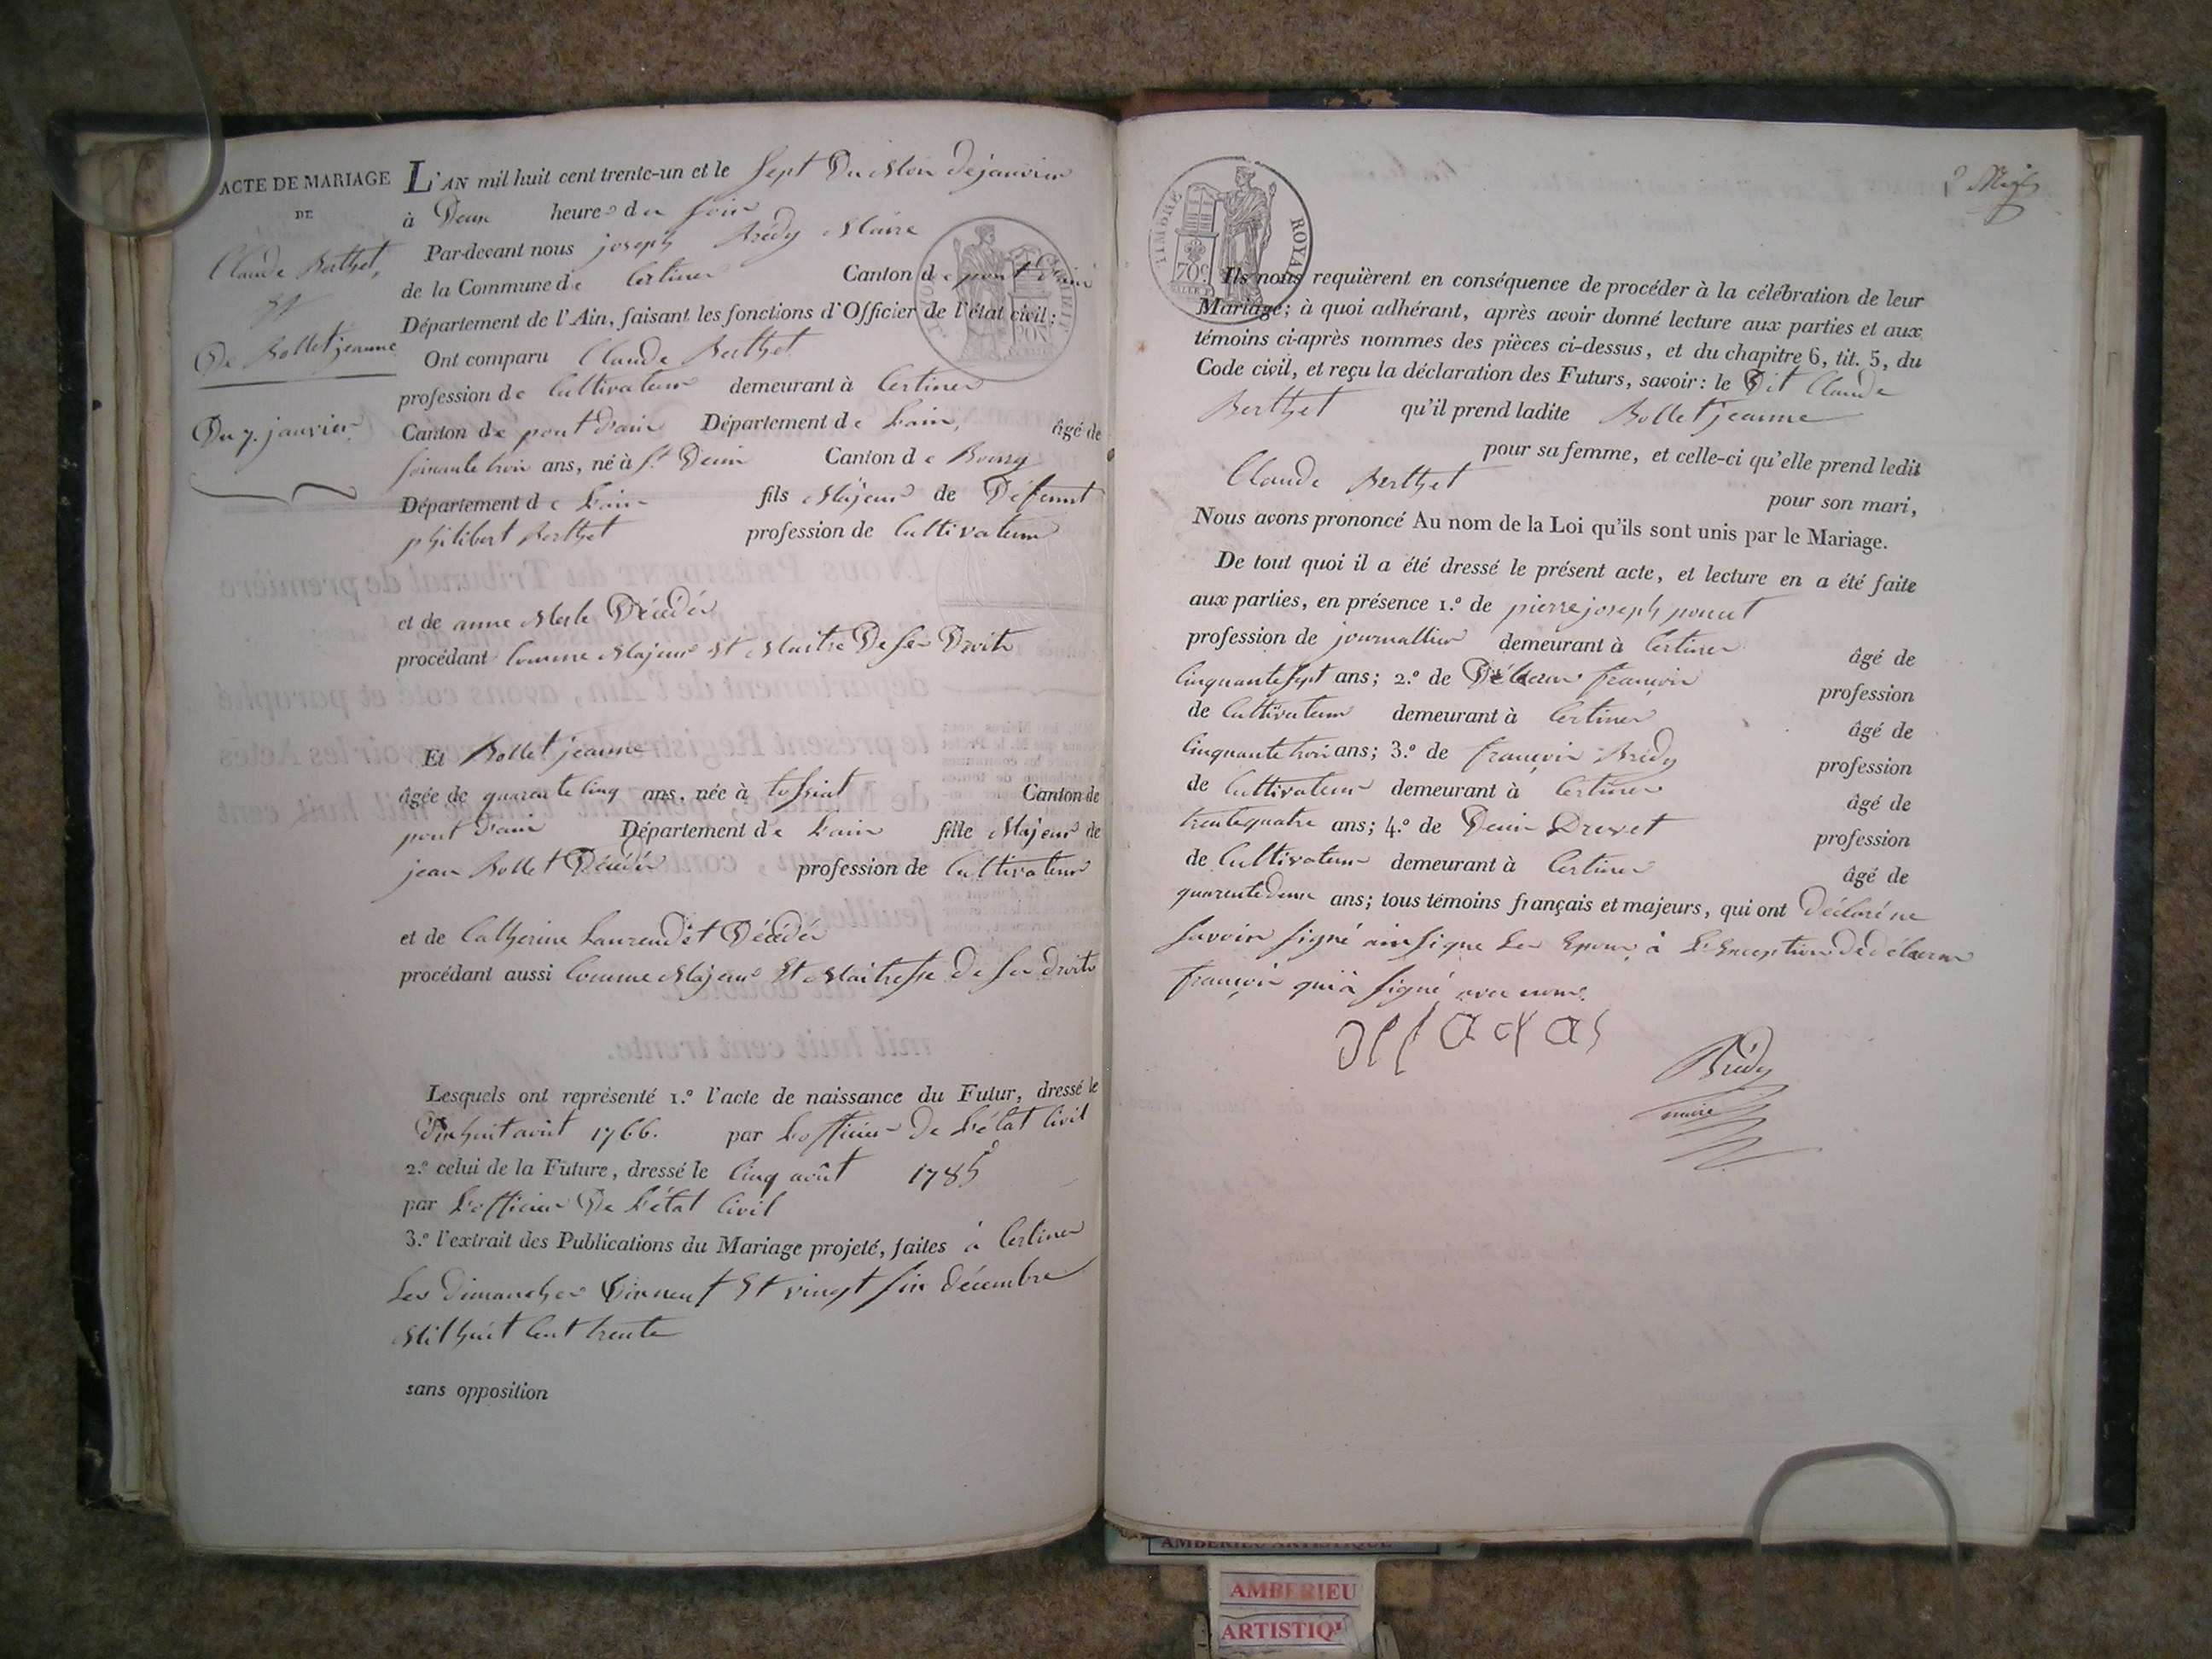 ACTE DE MARIAGE
DE
Claude Berthet,
Et
De Bollet jeanne
Du 7. janvier
L'AN mil huit cent trente-un et le Sept Du Mois de janvier
à Deux heures du soir
Par-devant nous joseph Brédy Maire
de la Commune de Certines Canton de pont d'ain
Département de l'Ain, faisant les fonctions d'Officier de l'état civil :
Ont comparu Claude Berthet
profession de Cultivateur demeurant à Certines
Canton de pont d'ain Département de L'ain, âgé de
soixante trois ans, né à St. Denis Canton de Bourg
Département de L'ain fils Majeur de Défunt
philibert Berthet profession de Cultivateur
et de anne Merle Décédés
procédant Comme Majeur Et Maitre De ses Droits
Et Bollet jeanne
âgée de quarente cinq ans, née à tossiat Canton de
pont d'ain Département de L'ain fille Majeur de
jean Bollet Décédé profession de Cultivateur
et de Catherine Laurend et Décédés
procédant aussi Comme Majeur Et Maitresse de ses droits
Lesquels ont représenté 1.º l'acte de naissance du Futur, dressé le
Dixhuit août 1766. par L'officier De L'état Civil
2.º celui de la Future, dressé le Cinq août 1785
par L'officier De L'état Civil
3.º l'extrait des Publications du Mariage projeté, faites à Certines
Les dimanches Dixneuf Et vingt six décembre
Mil huit Cent trente
sans opposition
TIMBRE ROYAL
70c
Ils nous requièrent en conséquence de procéder à la célébration de leur
Mariage; à quoi adhérant, après avoir donné lecture aux parties et aux
témoins ci-après nommes des pièces ci-dessus, et du chapitre 6, tit. 5, du
Code civil, et reçu la déclaration des Futurs, savoir : le Dit Claude
Berthet qu'il prend ladite Bollet jeanne
pour sa femme, et celle-ci qu'elle prend ledit
Claude Berthet pour son mari,
Nous avons prononcé Au nom de la Loi qu'ils sont unis par le Mariage.
De tout quoi il a été dressé le présent acte, et lecture en a été faite
aux parties, en présence 1.º de pierre joseph poncet
profession de journallier demeurant à Certines âgé de
Cinquante sept ans; 2.º de françois profession
de Cultivateur demeurant à Certines âgé de
Cinquante trois ans; 3.º de françois Brédy profession
de Cultivateur demeurant à Certines âgé de
trente quatre ans; 4.º de Denis Drevet profession
de Cultivateur demeurant à Certines âgé de
quarente deux ans; tous témoins français et majeurs, qui ont déclaré ne
savoir signé ainsi que Les Epoux à L'Exception de
françois qui à signé avec nous.
Brédy
maire
AMBERIEU ARTISTIQUE
AMBERIEU
ARTISTIQU